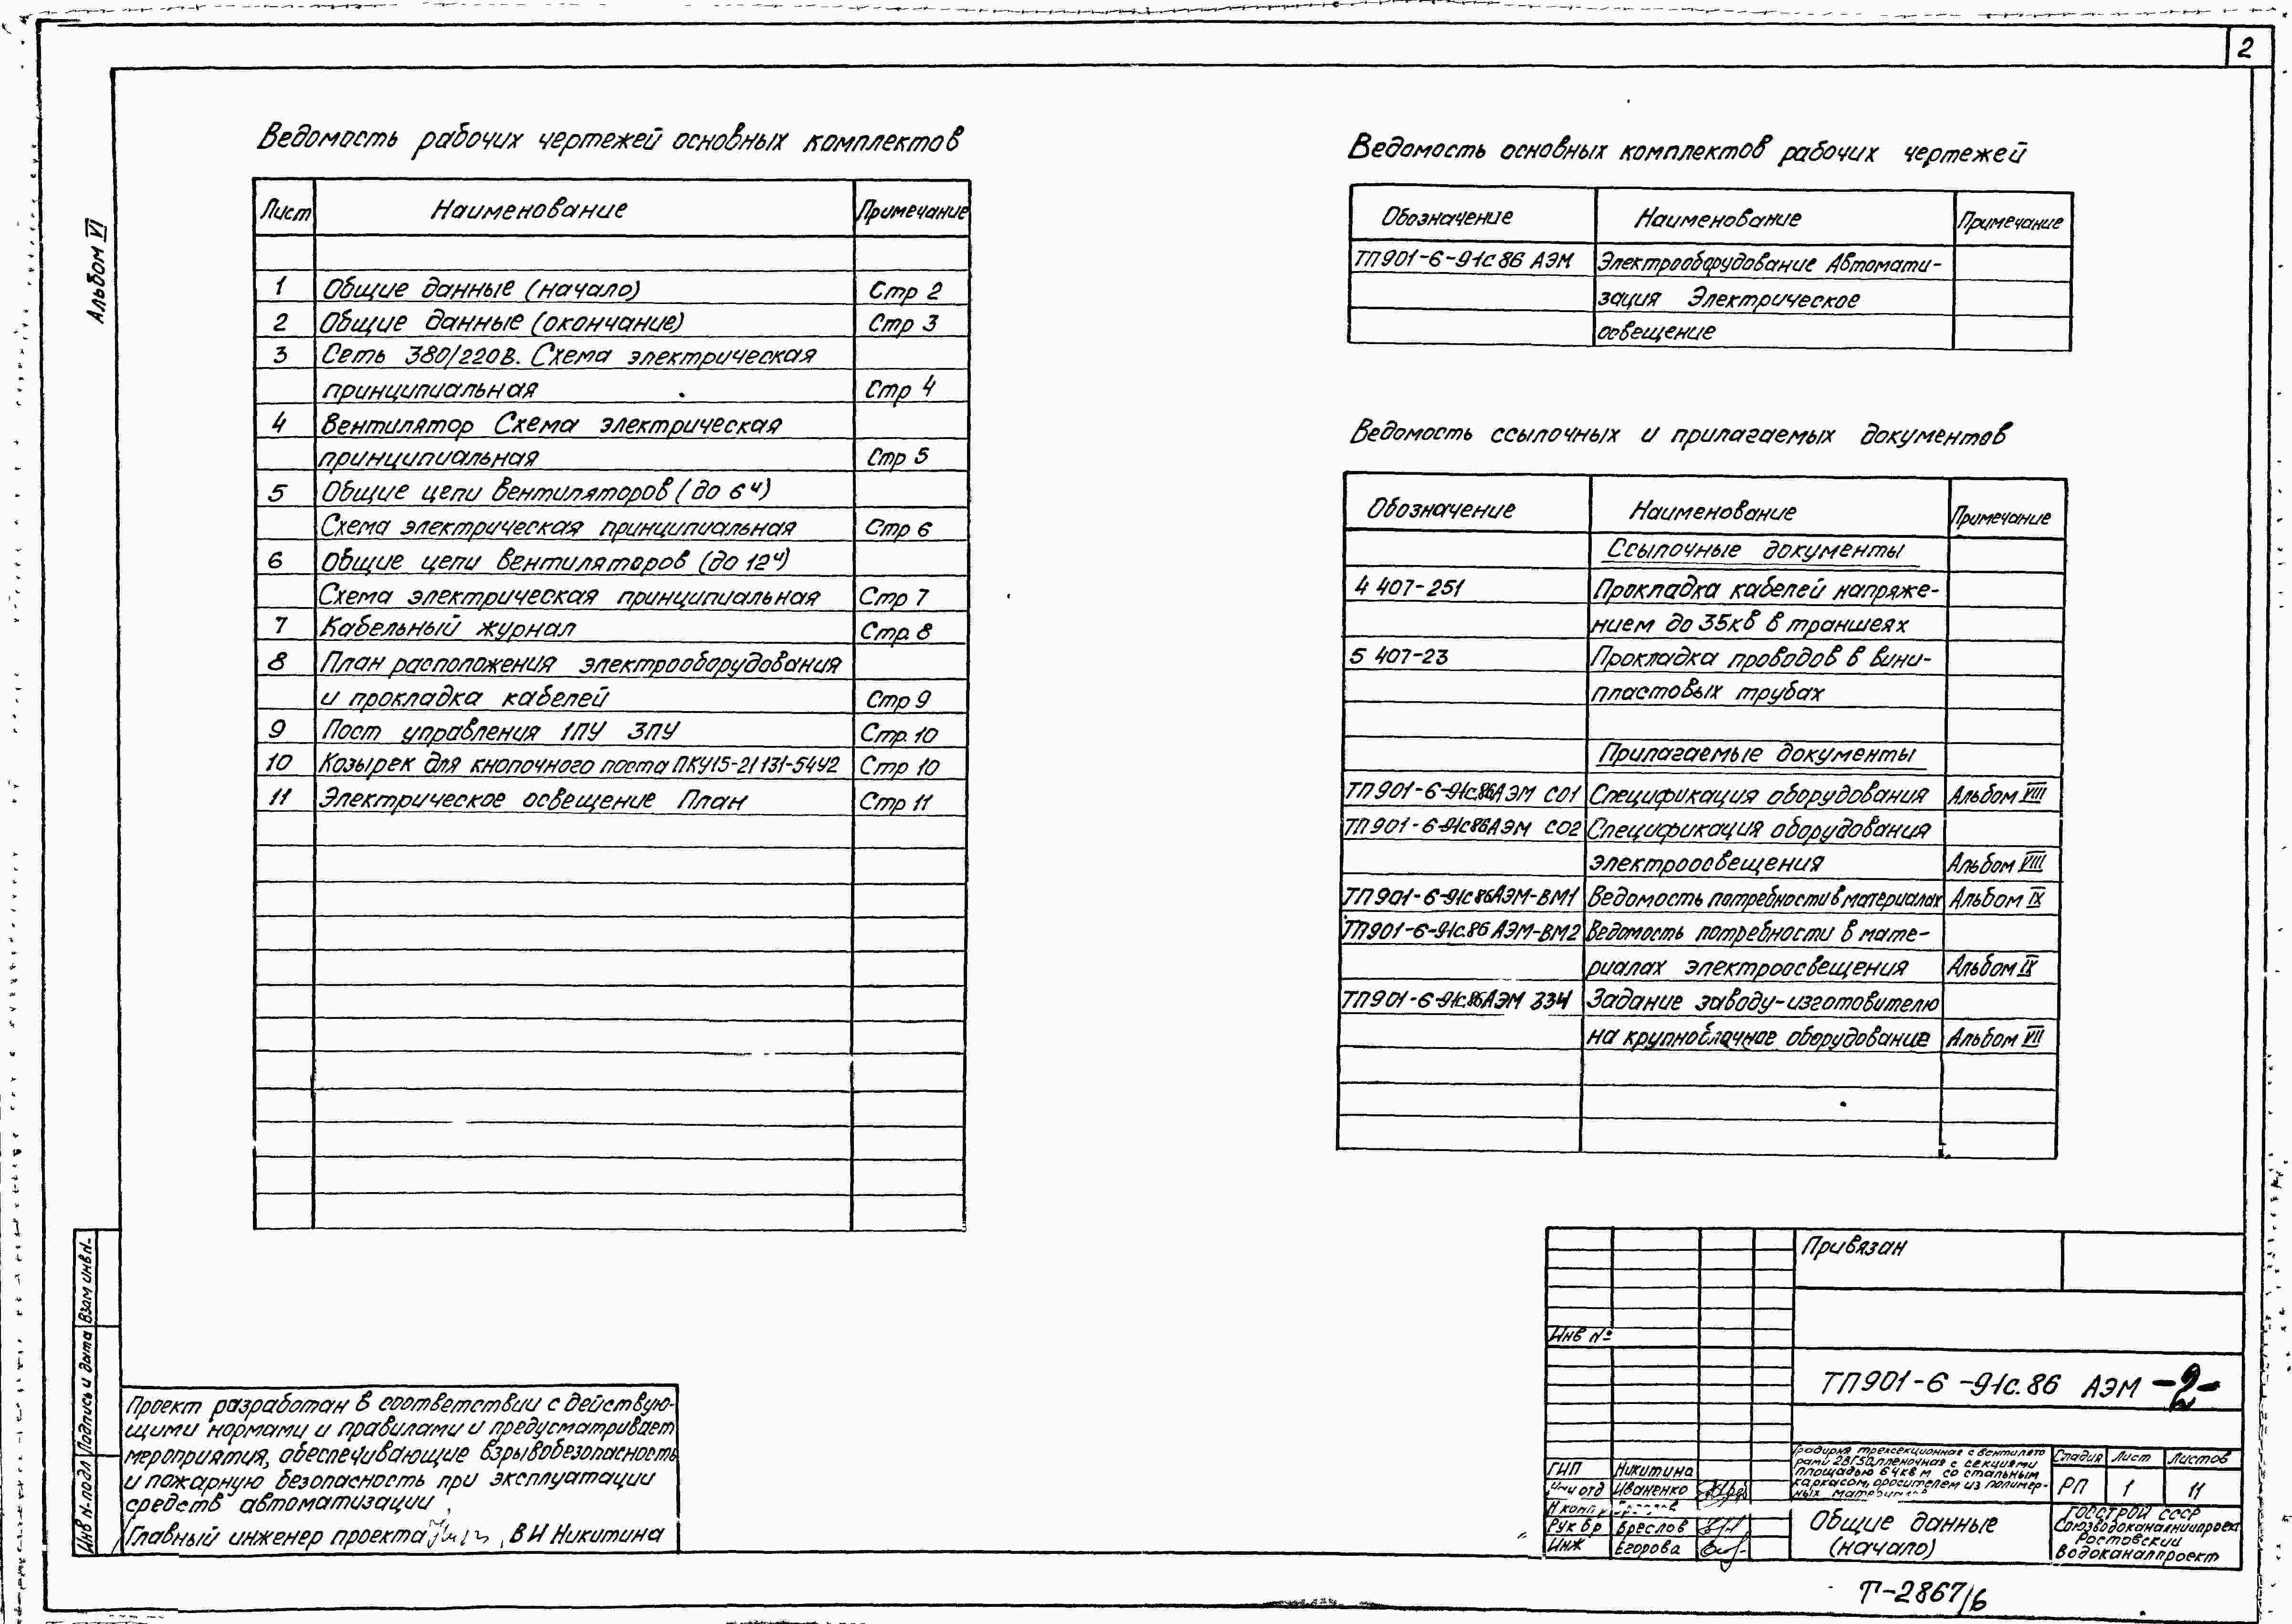 2
Альбом VI
Ведомость рабочих чертежей основных комплектов
Лист Наименование Примечание
1 Общие данные (начало) Стр 2
2 Общие данные (окончание) Стр 3
3 Сеть 380/220В. Схема электрическая
принципиальная Стр 4
4 Вентилятор Схема электрическая
принципиальная Стр 5
5 Общие цепи вентиляторов (до 6ч)
Схема электрическая принципиальная Стр 6
6 Общие цепи вентиляторов (до 12ч)
Схема электрическая принципиальная Стр 7
7 Кабельный журнал Стр. 8
8 План расположения электрооборудования
и прокладка кабелей Стр 9
9 Пост управления 1ПУ 3ПУ Стр. 10
10 Козырек для кнопочного поста ПКУ15-21131-54У2 Стр 10
11 Электрическое освещение План Стр 11
Ведомость основных комплектов рабочих чертежей
Обозначение Наименование Примечание
ТП901-6-91с86 АЭМ Электрооборудование Автомати-
зация Электрическое
освещение
Ведомость ссылочных и прилагаемых документов
Обозначение Наименование Примечание
Ссылочные документы
4 407-251 Прокладка кабелей напряже-
нием до 35кв в траншеях
5 407-23 Прокладка проводов в вини-
пластовых трубах
Прилагаемые документы
ТП901-6-91с.86АЭМ СО1 Спецификация оборудования Альбом VIII
ТП901-6-91с86АЭМ СО2 Спецификация оборудования
электроосвещения Альбом VIII
ТП901-6-91с86АЭМ-ВМ1 Ведомость потребности в материалах Альбом IX
ТП901-6-91с.86 АЭМ-ВМ2 Ведомость потребности в мате-
риалах электроосвещения Альбом IX
ТП901-6-91с.86АЭМ ЗЗИ Задание заводу-изготовителю
на крупноблочное оборудование Альбом VII
Проект разработан в соответствии с действую-
щими нормами и правилами и предусматривает
мероприятия, обеспечивающие взрывобезопасность
и пожарную безопасность при эксплуатации
средств автоматизации
Главный инженер проекта В И Никитина
Инв N-подл Подпись и дата Взам инв N-
Привязан
Инв №
ТП901-6-91с.86 АЭМ -2-
Градирня трехсекционная с вентилято
рами 2ВГ50, пленочная с секциями
площадью 64кв м со стальным
каркасом, оросителем из полимер-
ных материалов
Стадия Лист Листов
РП 1 11
ГИП Никитина
отд Иваненко
Н конт
Рук бр Бреслов
Инж Егорова
Общие данные
(начало)
Госстрой СССР
Союзводоканалниипроект
Ростовский
Водоканалпроект
Т-2867/6